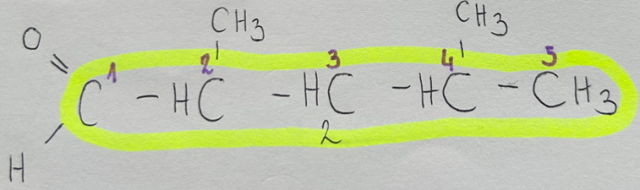 O CH3 CH3
1 2 3 4 5
C - HC - HC - HC - CH3
H 2